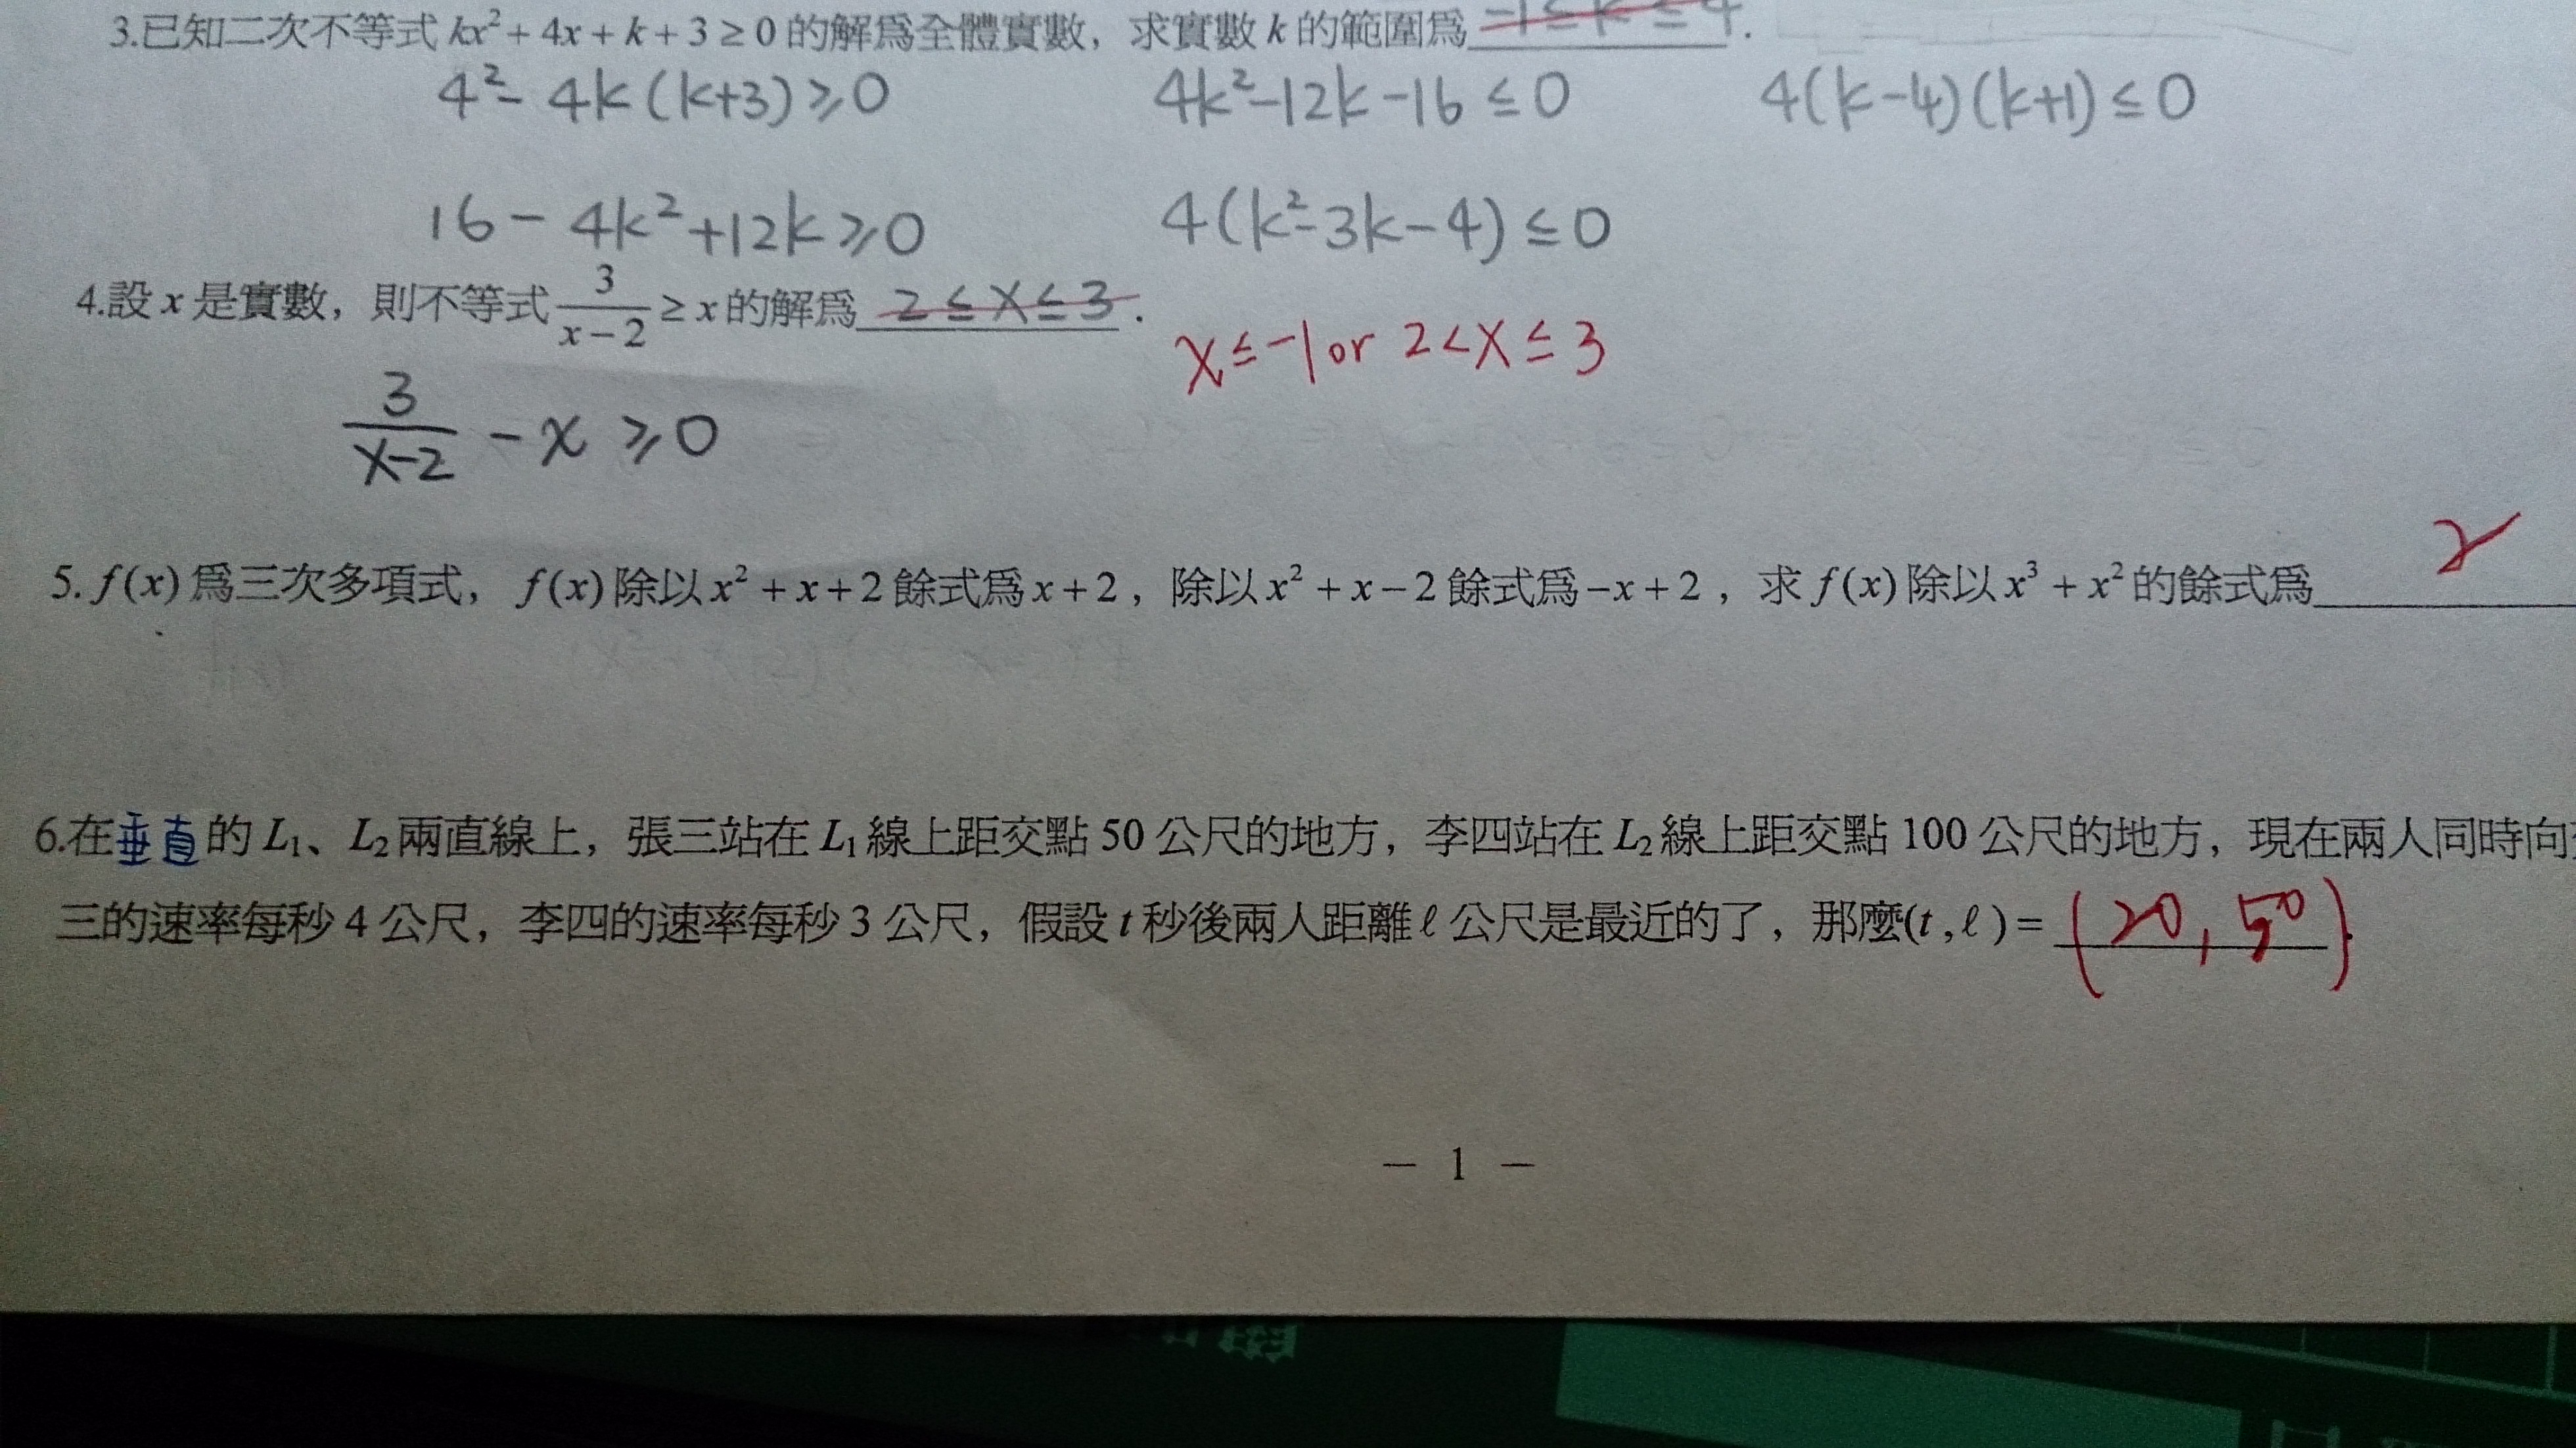 3.已知二次不等式 kx²+4x+k+3≥0 的解為全體實數，求實數 k 的範圍為 -1≤k≤4.
4²-4k(k+3)≥0 4k²-12k-16≤0 4(k-4)(k+1)≤0
16-4k²+12k≥0 4(k²-3k-4)≤0
4.設 x 是實數，則不等式 3/(x-2) ≥ x 的解為 2≤x≤3.
x≤-1 or 2<x≤3
3/(x-2) - x ≥0
2
5. f(x) 為三次多項式，f(x) 除以 x²+x+2 餘式為 x+2，除以 x²+x-2 餘式為 -x+2，求 f(x) 除以 x³+x² 的餘式為
6.在垂直的 L₁、L₂ 兩直線上，張三站在 L₁ 線上距交點 50 公尺的地方，李四站在 L₂ 線上距交點 100 公尺的地方，現在兩人同時向
三的速率每秒 4 公尺，李四的速率每秒 3 公尺，假設 t 秒後兩人距離 ℓ 公尺是最近的了，那麼(t,ℓ)= (20,50).
— 1 —